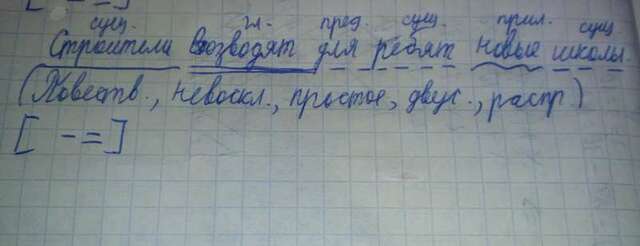 [ - = ]
сущ. гл. пред. сущ. прил. сущ
Строители возводят для ребят новые школы.
(Повеств., невоскл., простое, двус., распр)
[ - = ]